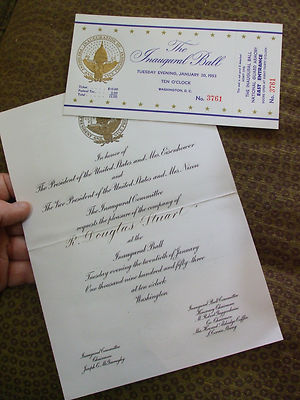 The
Inaugural Ball
TUESDAY EVENING, JANUARY 20, 1953
TEN O'CLOCK
WASHINGTON, D. C.
No. 3761
THE INAUGURAL BALL
NATIONAL GUARD ARMORY
EAST ENTRANCE
No. 3761
In honor of
The President of the United States and Mrs. Eisenhower
and
The Vice President of the United States and Mrs. Nixon
The Inaugural Committee
requests the pleasure of the company of
R. Douglas Stuart
at the
Inaugural Ball
Tuesday evening the twentieth of January
One thousand nine hundred and fifty three
at ten o'clock
Washington
Inaugural Committee
Chairman
Joseph C. McGarraghy
Inaugural Ball Committee
Honorary Chairman
M. Robert Guggenheim
Co-Chairmen